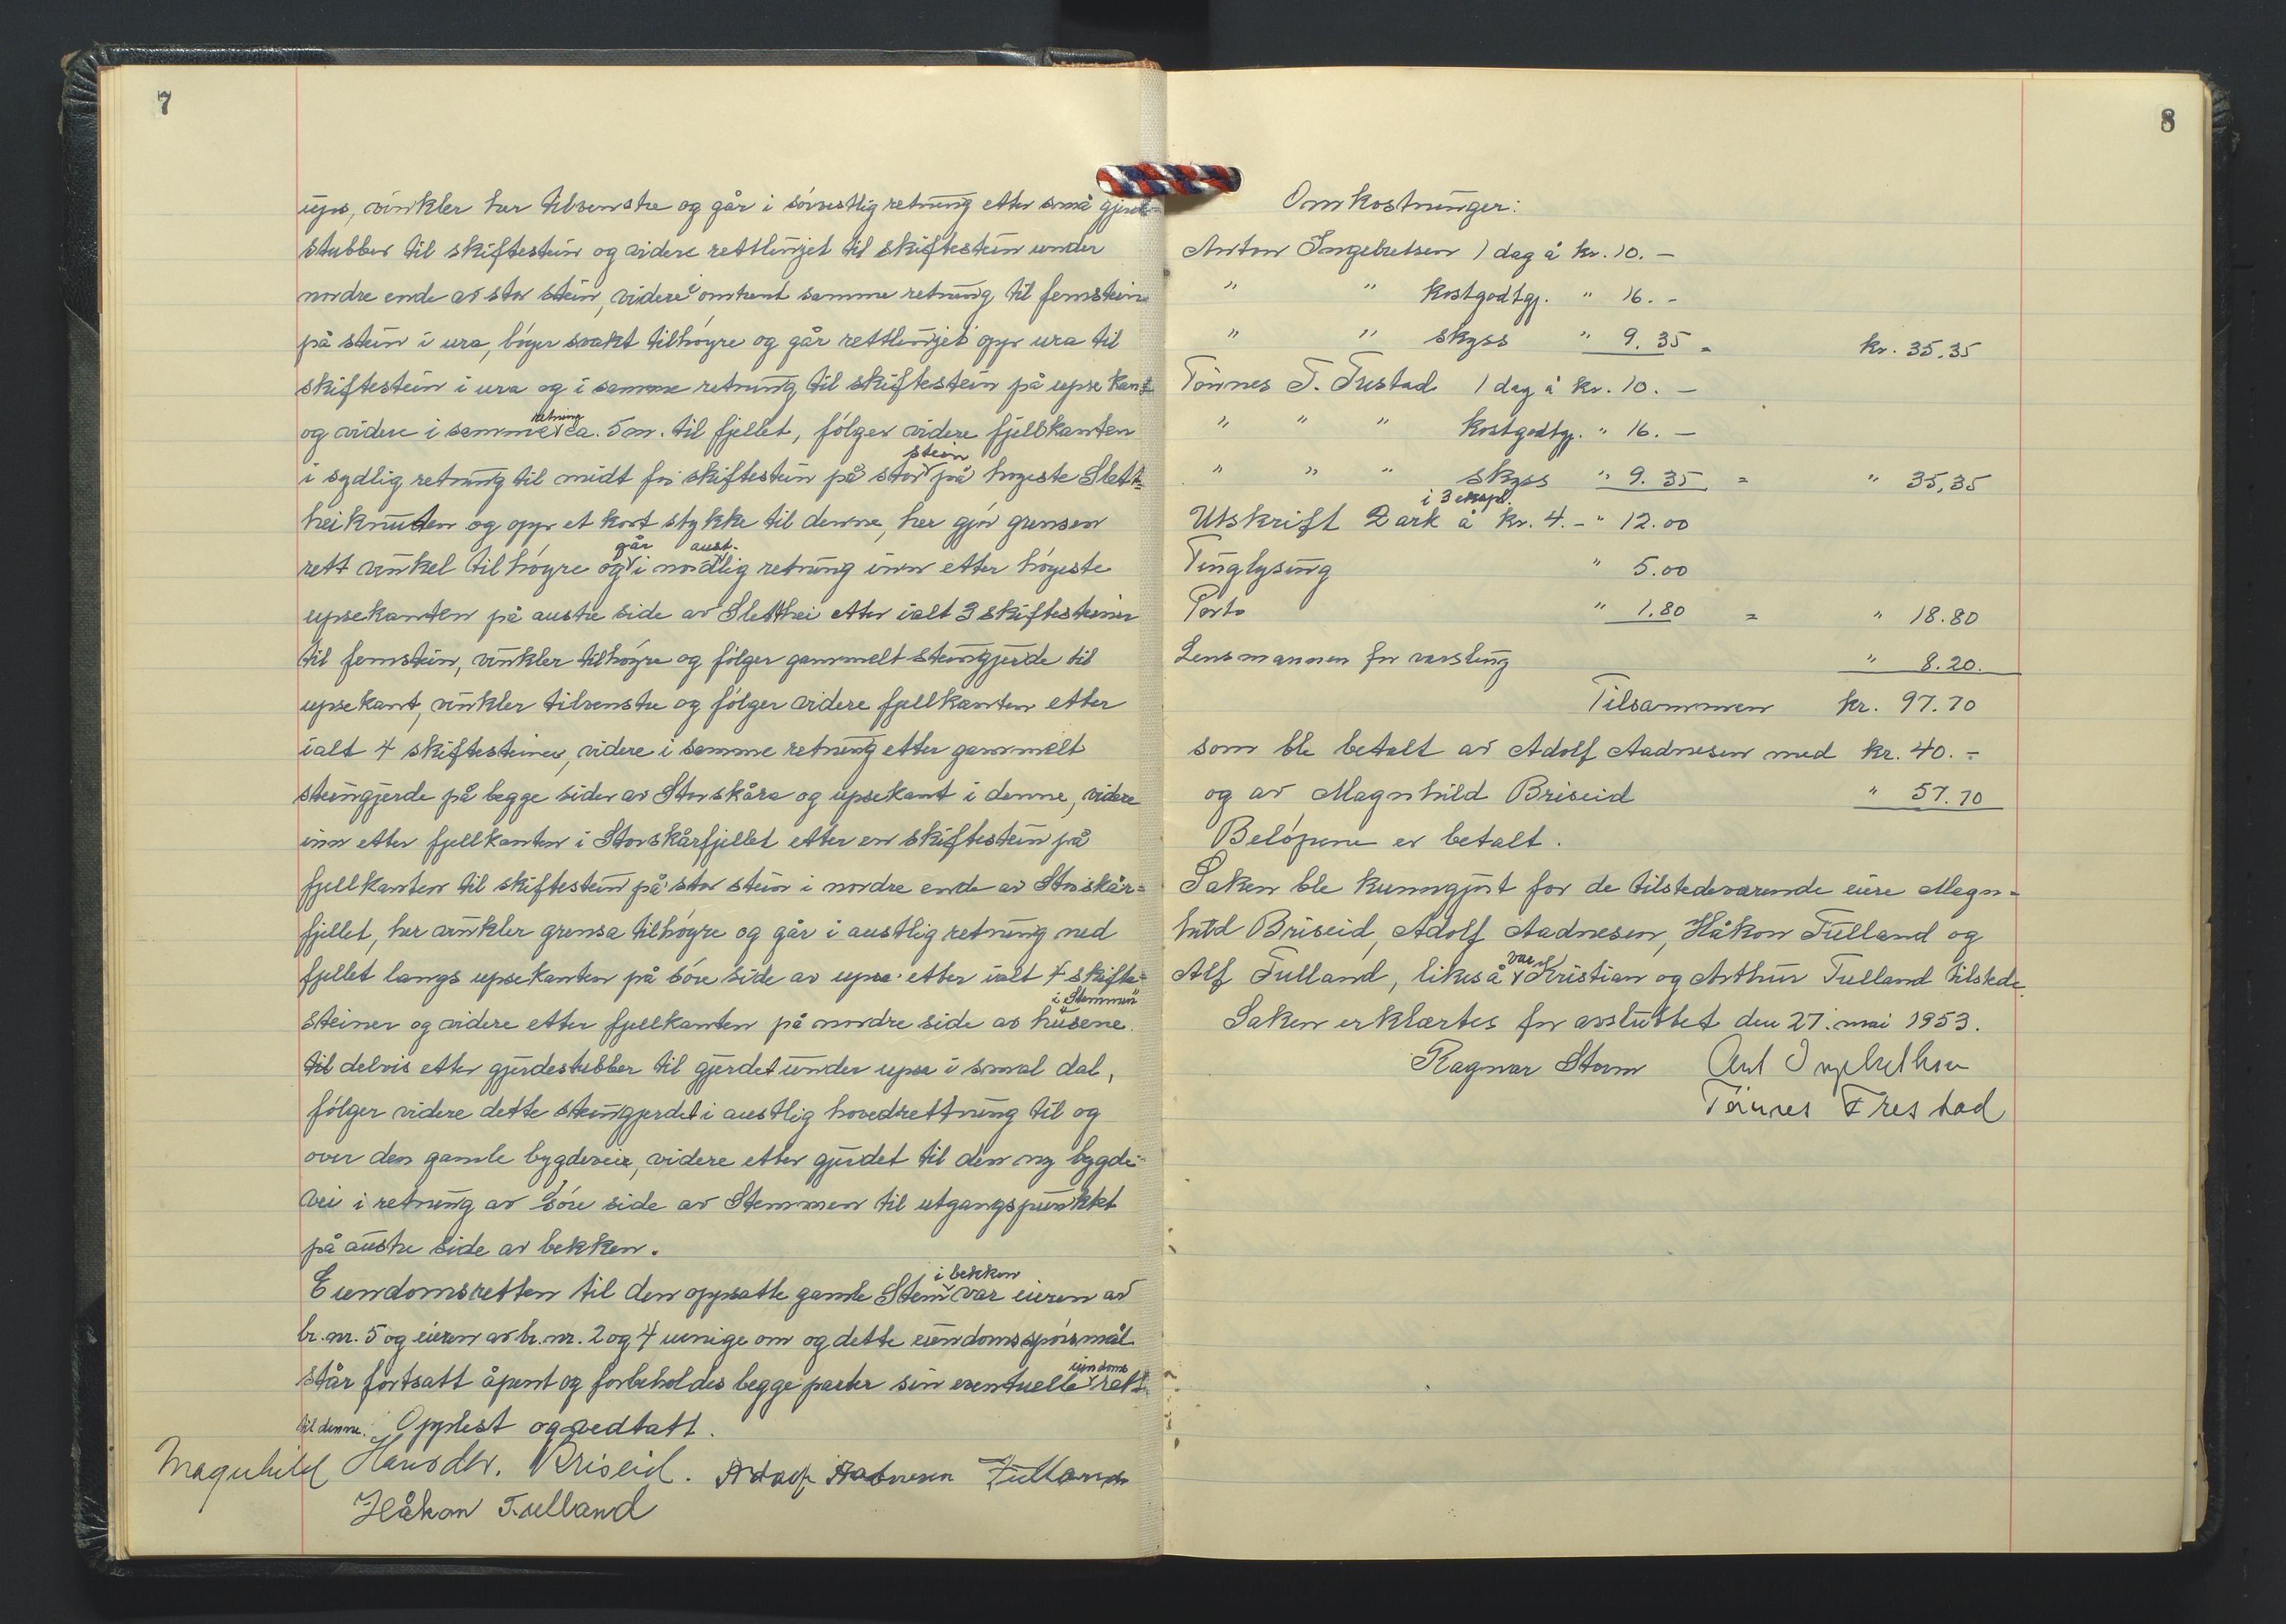 7
ups, vinkler her tilvenstre og går i sörvestlig retning etter små gjerde-
stubber til skiftestein og videre rettlinjet til skiftestein under
nordre ende av stor stein, videre i omtrent samme retning til femstein
på stein i ura, böyer svakt tilhöyre og går rettlinjet opp ura til
skiftestein i ura og i samme retning til skiftestein på upsekant
og videre i samme retning ca. 5 m. til fjellet, fölger videre fjellkanten
i sydlig retning til midt for skiftestein på stor stein på høgeste Slett-
heiknuten og opp et kort stykke til denne, her gjör grensen
rett vinkel tilhöyre og går i nordaustlig retning inn etter höyeste
upsekanten på austre side av Sletthei etter ialt 3 skiftesteiner
til femstein, vinkler tilhöyre og fölger gammelt steingjerde til
upsekant, vinkler tilvenstre og fölger videre fjellkanten etter
ialt 4 skiftesteiner, videre i samme retning etter gammelt
steingjerde på begge sider av Storskåra og upsekant i denne, videre
inn etter fjellkanten i Storskårfjellet etter en skiftestein på
fjellkanten til skiftestein på stor stein i nordre ende av Storskår-
fjellet, her vinkler grensa tilhöyre og går i austlig retning ned
fjellet langs upsekanten på söre side av upse etter ialt 4 skifte-
steiner og videre etter fjellkanten på nordre side av husene i Stemmen
til delvis etter gjerdestubber til gjerdet under upse i smal dal,
fölger videre dette steingjerdet i austlig hovedrettning til og
over den gamle bygdevei, videre etter gjerdet til den ny bygde-
vei i retning av söre side av Stemmen til utgangspunktet
på austre side av bekken.
Eiendomsretten til den oppsatte gamle Stem i bekken var eieren av
br. nr. 5 og eieren av br. nr. 2 og 4 uenige om og dette eiendomsspörsmål
står fortsatt åpent og forbeholdes begge parter sin eventuelle eiendoms rett
til denne. Opplest og vedtatt.
Magnhild Hansdtr. Briseid. Adolf Aadnesen Tulland
Håkon Tulland
8
Omkostninger:
Anton Ingebretsen 1 dag å kr. 10. -
" " kostgodtgj. " 16. -
" " skyss " 9.35 = kr. 35,35
Tönnes T. Frestad 1 dag å kr. 10. -
" " " kostgodtgj. " 16. -
" " " skyss " 9.35 = " 35,35
Utskrift 2 ark i 3 ekspl. å kr. 4. - " 12.00
Tinglysing " 5.00
Porto " 1.80 = " 18.80
Lensmannen for varsling " 8.20.
Tilsammen kr. 97.70
som ble betalt av Adolf Aadnesen med kr. 40. -
og av Magnhild Briseid " 57.70
Belöpene er betalt.
Saken ble kunngjort for de tilstedeværende eiere Magn-
hild Briseid, Adolf Aadnesen, Håkon Tulland og
Alf Tulland, likeså var Kristian og Arthur Tulland tilstede.
Saken erklærtes for avsluttet den 27. mai 1953.
Ragnar Storm Ant Ingebretsen
Tönnes Frestad